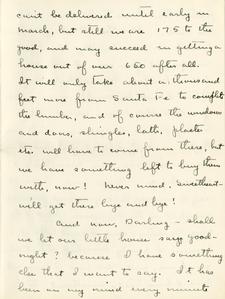 can't be delivered until early in
March, but still we are 175 to the
good, and may succeed in getting a
house out of our 650 after all.
It will only take about a thousand
feet more from Santa Fe to complete
the lumber, and of course the windows
and doors, shingles, lath, plaster
etc. will have to come from there, but
we have something left to buy them
with, now! Never mind, Sweetheart-
we'll get there bye and bye!
And now, Darling - shall
we let our little house say good-
night? because I have something
else that I want to say. It has
been on my mind every minute